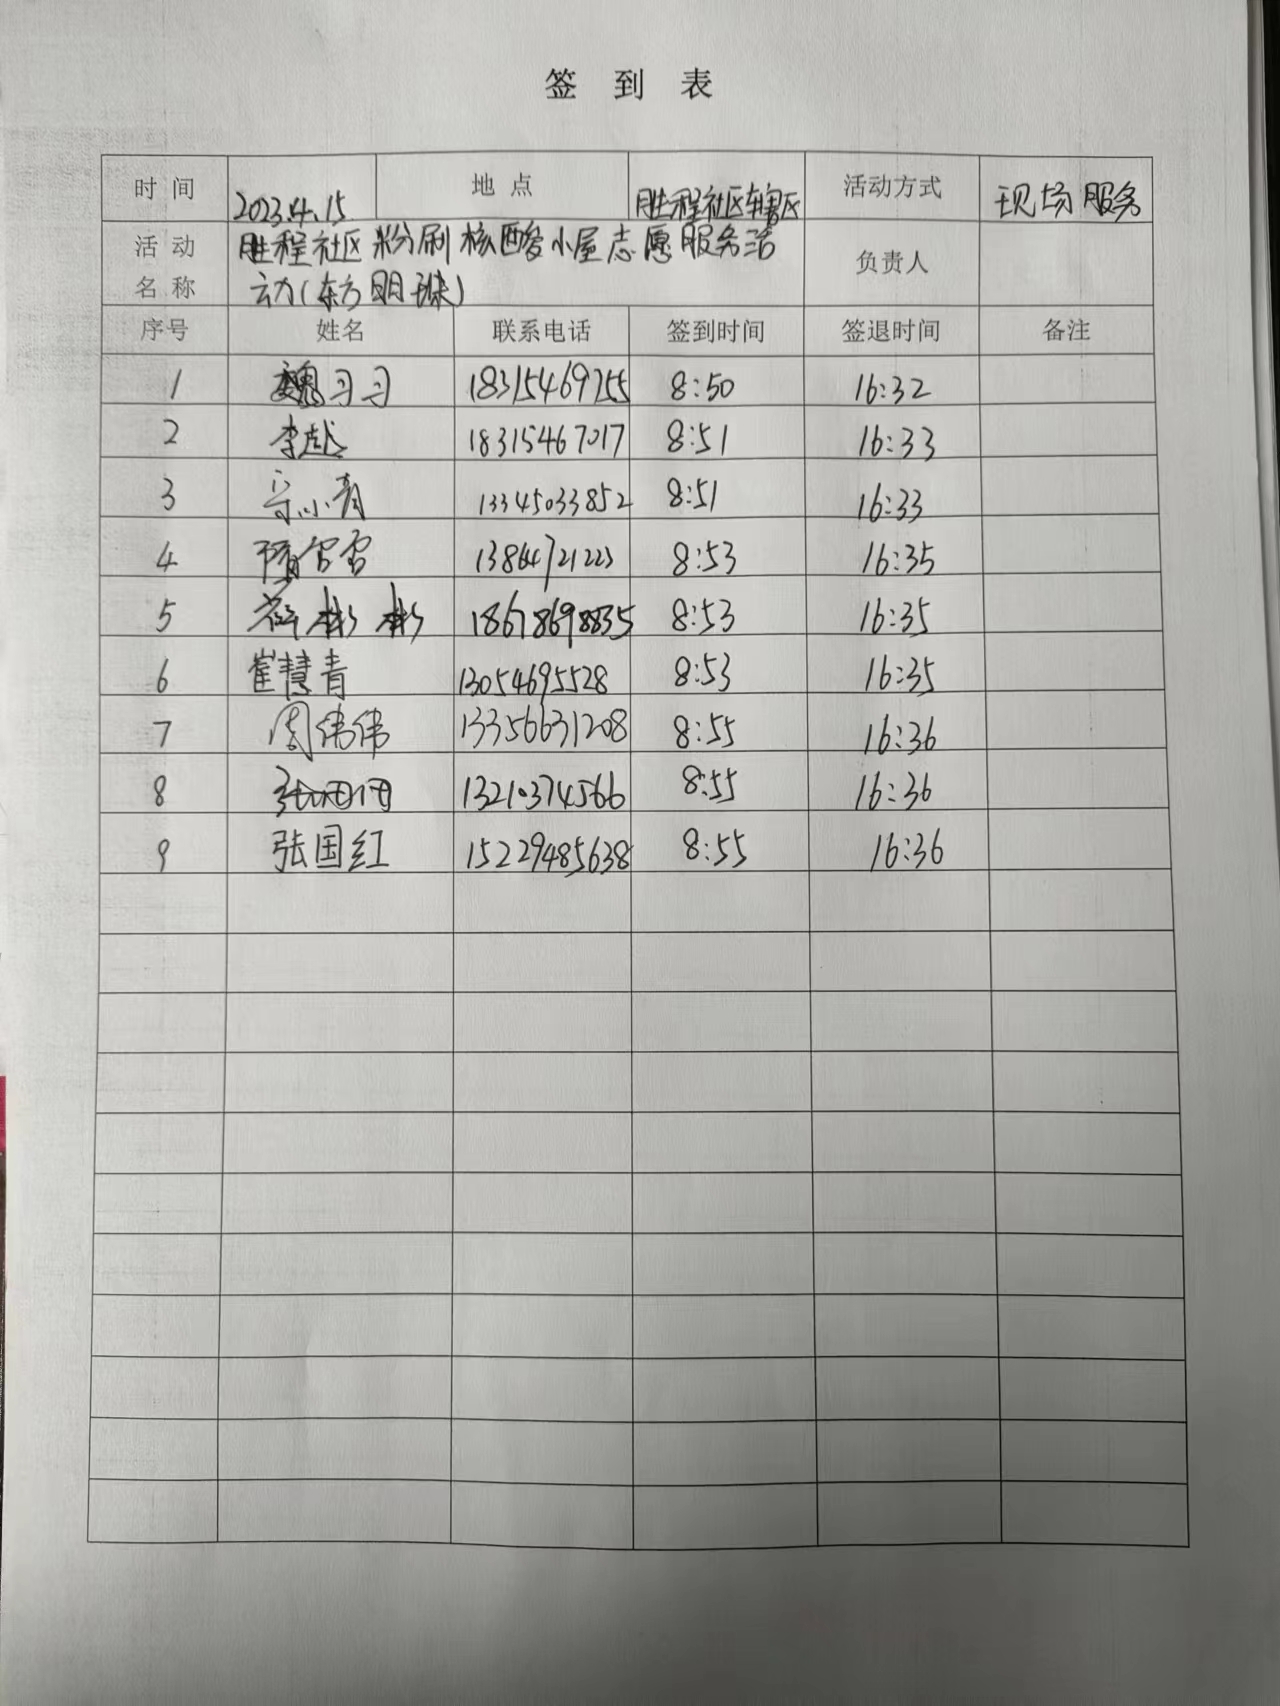 签 到 表
时 间 2023.4.15 地 点 胜程社区辖区 活动方式 现场服务
活 动 名 称 胜程社区粉刷核酸小屋志愿服务活 负责人
动(东方明珠)
序号 姓名 联系电话 签到时间 签退时间 备注
1 魏习习 18315469755 8:50 16:32
2 李越 18315467017 8:51 16:33
3 宗小青 13345033852 8:51 16:33
4 隋雪雪 13864721223 8:53 16:35
5 薛彬彬 18678698835 8:53 16:35
6 崔慧青 13054695528 8:53 16:35
7 周伟伟 13356631208 8:55 16:36
8 13210374566 8:55 16:36
9 张国红 15229485638 8:55 16:36